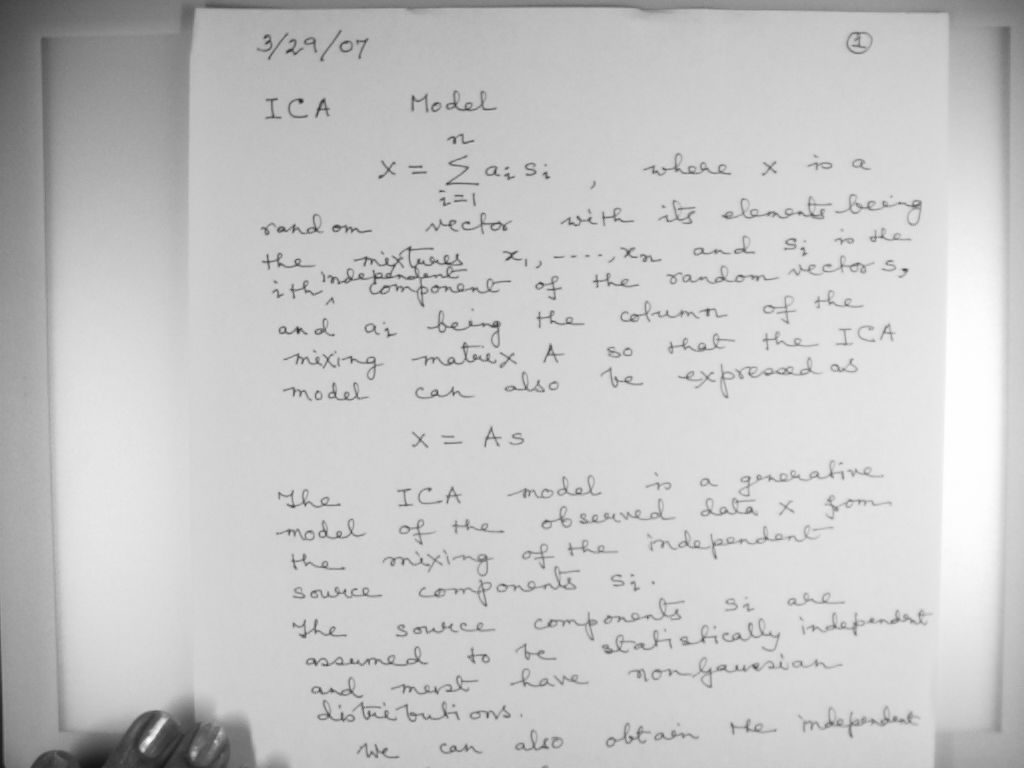 3/29/07 ①
ICA Model
x = n∑i=1 ai si , where x is a
random vector with its elements being
the mixtures x1, ----, xn and si is the
ith ^independent component of the random vector s,
and ai being the column of the
mixing matrix A so that the ICA
model can also be expressed as
x = As
The ICA model is a generative
model of the observed data x from
the mixing of the independent
source components si.
The source components si are
assumed to be statistically independent
and must have nonGaussian
distributions.
We can also obtain the independent